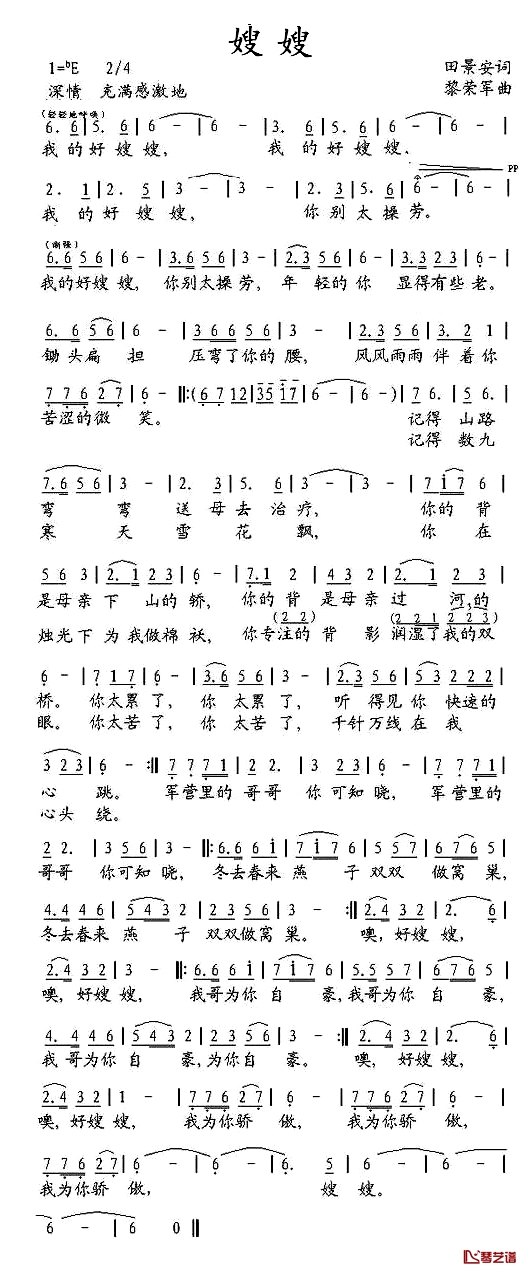 嫂嫂
1=♭E 2/4
田景安词
深情 充满感激地
黎荣军曲
(轻轻地呼唤)
6. 6 | 5. 6 | 6 - | 6 - | 3. 6 | 5. 6 | 6 - | 6 - |
我的好嫂嫂, 我的好嫂嫂,
PP
2. 1 | 2. 5 | 3 - | 3 - | 2. 5 | 5. 6 | 6 - | 6 - |
我的好嫂嫂, 你别太操劳。
6. 6 5 6 | 6 - | 3. 6 5 6 | 3 - | 2. 3 | 6 - | 3. 3 2 3 | 6 - |
我的好嫂嫂, 你别太操劳, 年轻的你 显得有些老。
6. 6 5 6 | 6 - | 3 5 6 5 6 | 3 - | 2. 3 5 6 | 3. 2 1 |
锄头扁担 压弯了你的腰, 风风雨雨伴着你
7 7 6 2 7 | 6 - ‖: (6 7 1 2 | 3 5 1 7 | 6 - | 6 - ) | 7 6. | 5 6. |
苦涩的微笑。 记得山路
记得数九
7. 6 5 6 | 3 - | 2. 5 | 5. 6 | 3 - | 3 - | 7 1 7 6 |
弯弯送母去治疗, 你的背
寒天雪花飘, 你在
5 6 3 | 2. 1 2 3 | 6 - | 7. 1 2 | 3 2 3 | 2. 1 6 2 |
是母亲下山的轿, 你的背是母亲过河的
(2 2) (2 2 1 2 3)
烛光下为我做棉袄, 你专注的背影润湿了我的双
6 - | 7 1 7 | 6 - | 3. 5 6 | 3 - | 2. 3 5 | 6 5 6 |
桥。 你太累了, 你太累了, 听得见你快速的
眼。 你太苦了, 你太苦了, 千针万线在我
3 2 3 | 6 - :‖ 7 7 7 1 | 2 2. | 3 5 6 | 3 - | 7 7 7 1 |
心跳。 军营里的哥哥你可知晓, 军营里的
心头绕。
2 2. | 3 5 6 | 3 - ‖: 6. 6 6 1 | 7 1 7 6 | 5 5 6 7 | 6 7 5 |
哥哥你可知晓, 冬去春来燕子双双做窝巢,
4. 4 4 6 | 5 4 3 | 2 3 5 6 | 3 - :‖ 2. 4 3 2 | 2. 6 |
冬去春来燕子双双做窝巢。 噢,好嫂嫂,
2. 4 3 2 | 3 - ‖: 6. 6 6 1 | 7 1 7 6 | 5. 5 5 7 | 6 7 6 5 |
噢,好嫂嫂, 我哥为你自豪,我哥为你自豪,
4. 4 4 6 | 5 4 3 | 2 2 5 6 | 3 - :‖ 2. 4 3 2 | 2. 6 |
我哥为你自豪,为你自豪。 噢,好嫂嫂,
2. 4 3 2 | 1 - | 7 7 6 2 7 | 6 - | 7 7 6 2 7 | 6 - |
噢,好嫂嫂, 我为你骄傲, 我为你骄傲,
7 7 6 2 7 | 6 - | 6 - | 6 - | 6. 5 | 6 - |
我为你骄傲, 嫂嫂。
6 - | 6 0 ‖
琴艺谱